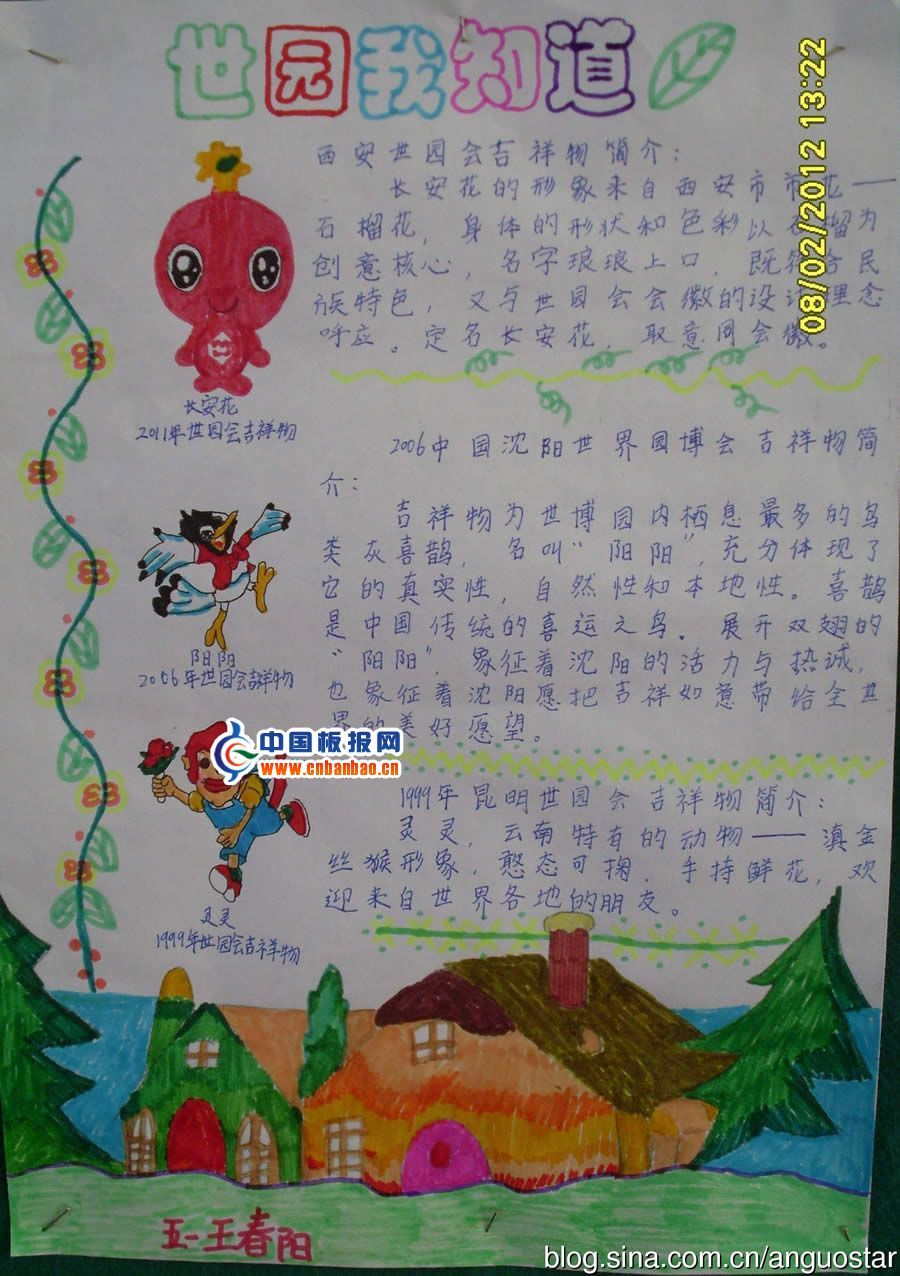 世园我知道
08/02/2012 13:22
西安世园会吉祥物简介：
长安花的形象来自西安市市花——
石榴花，身体的形状和色彩以石留为
创意核心，名字琅琅上口，既符合民
族特色，又与世园会会徽的设计理念
呼应。定名长安花，取意同会徽。
长安花
2011年世园会吉祥物
2006中国沈阳世界园博会吉祥物简
介：
吉祥物为世博园内栖息最多的鸟
类灰喜鹊，名叫“阳阳”，充分体现了
它的真实性，自然性和本地性。喜鹊
是中国传统的喜运之鸟。展开双翅的
“阳阳”，象征着沈阳的活力与热诚，
也象征着沈阳愿把吉祥如意带给全世
界的美好愿望。
阳阳
2006年世园会吉祥物
中国板报网
www.cnbanbao.cn
1999年昆明世园会吉祥物简介：
灵灵，云南特有的动物——滇金
丝猴形象，憨态可掬，手持鲜花，欢
迎来自世界各地的朋友。
灵灵
1999年世园会吉祥物
五一王春阳
blog.sina.com.cn/anguostar